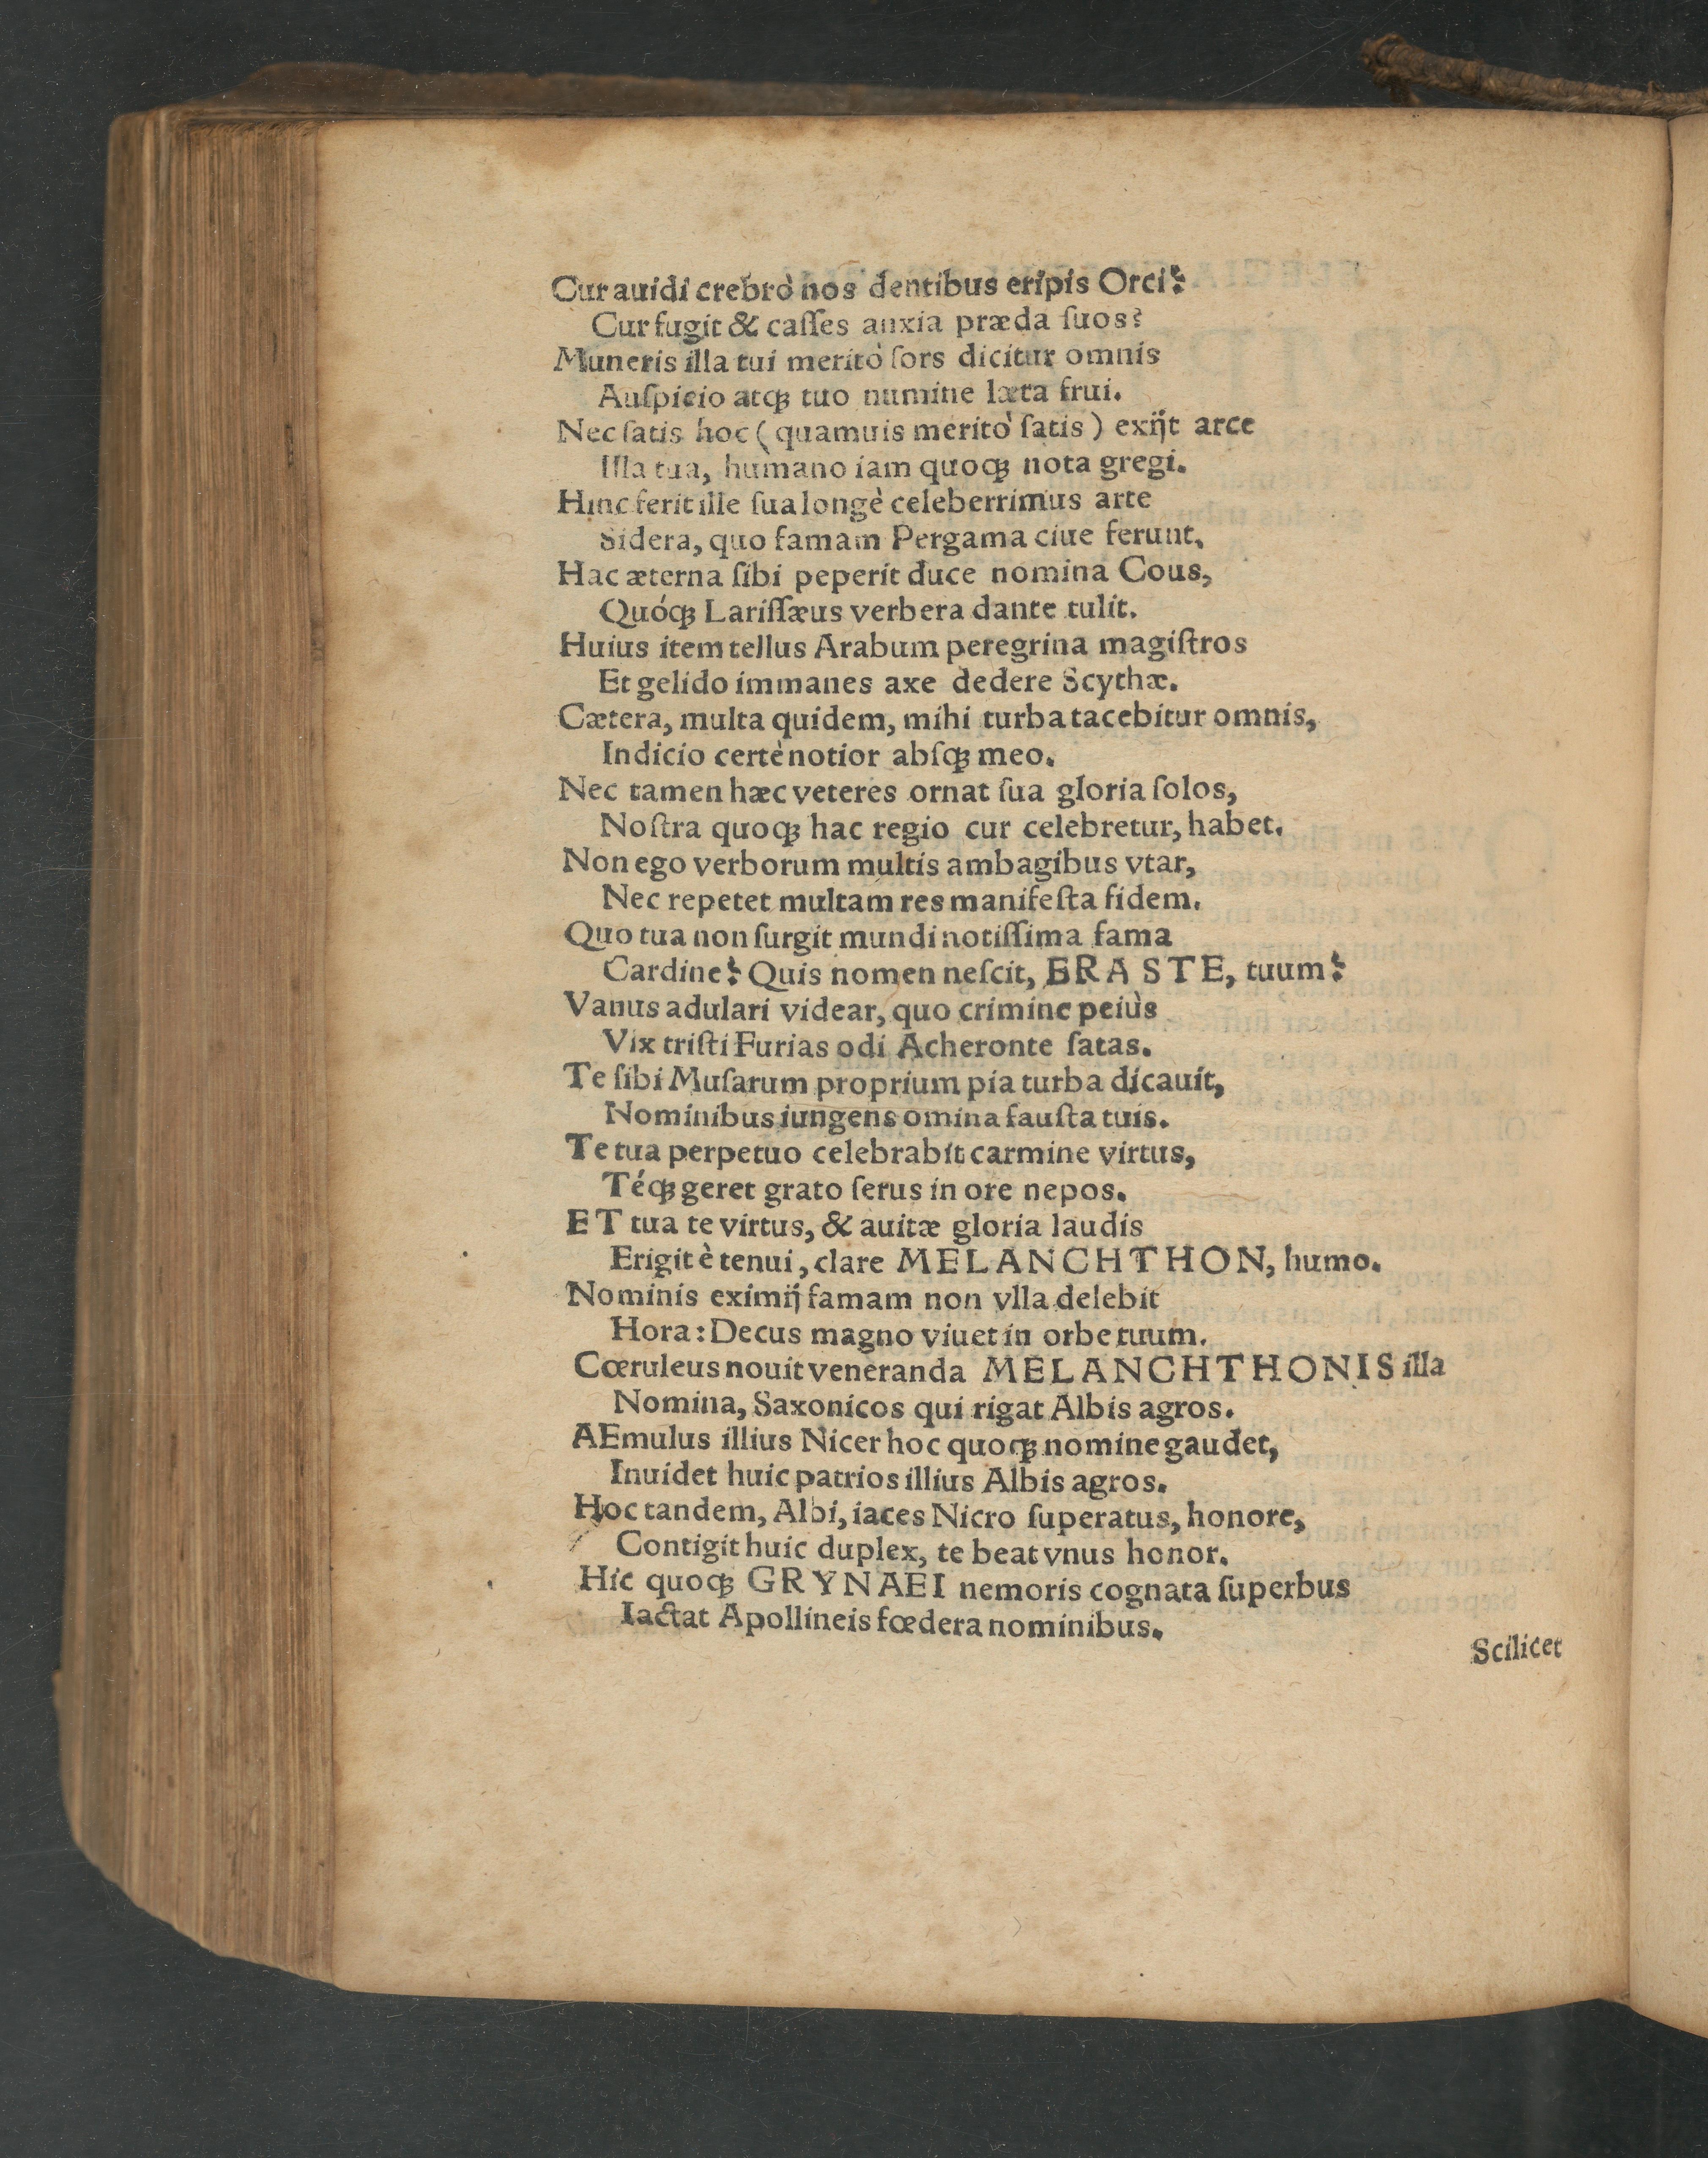 Cur auidi crebrò nos dentibus eripis Orci?
Cur fugit & caſſes anxia præda ſuos?
Muneris illa tui meritò ſors dicitur omnis
Auſpicio atq́ꝫ tuo numine læta frui.
Nec ſatis hoc (quamuis meritò ſatis) exijt arce
Illa tua, humano iam quoqꝫ nota gregi.
Hinc ferit ille ſua longè celeberrimus arte
Sidera, quo famam Pergama ciue ferunt.
Hac æterna ſibi peperit duce nomina Cous,
Quóqꝫ Lariſſæus verbera dante tulit.
Huius item tellus Arabum peregrina magiſtros
Et gelido immanes axe dedere Scythæ.
Cætera, multa quidem, mihi turba tacebitur omnis,
Indicio certè notior abſqꝫ meo.
Nec tamen hæc veteres ornat ſua gloria ſolos,
Noſtra quoqꝫ hac regio cur celebretur, habet.
Non ego verborum multis ambagibus vtar,
Nec repetet multam res manifeſta fidem.
Quo tua non ſurgit mundi notiſſima fama
Cardine? Quis nomen neſcit, ERASTE, tuum?
Vanus adulari videar, quo crimine peiùs
Vix triſti Furias odi Acheronte ſatas.
Te ſibi Muſarum proprium pia turba dicauit,
Nominibus iungens omina fauſta tuis.
Te tua perpetuo celebrabit carmine virtus,
Téqꝫ geret grato ſerus in ore nepos.
ET tua te virtus, & auitæ gloria laudis
Erigit è tenui, clare MELANCHTHON, humo.
Nominis eximij famam non vlla delebit
Hora: Decus magno viuet in orbe tuum.
Cœruleus nouit veneranda MELANCHTHONIS illa
Nomina, Saxonicos qui rigat Albis agros.
AEmulus illius Nicer hoc quoqꝫ nomine gaudet,
Inuidet huic patrios illius Albis agros.
Hoc tandem, Albi, iaces Nicro ſuperatus, honore,
Contigit huic duplex, te beat vnus honor.
Hic quoqꝫ GRYNAEI nemoris cognata ſuperbus
Iactat Apollineis fœdera nominibus.
Scilicet